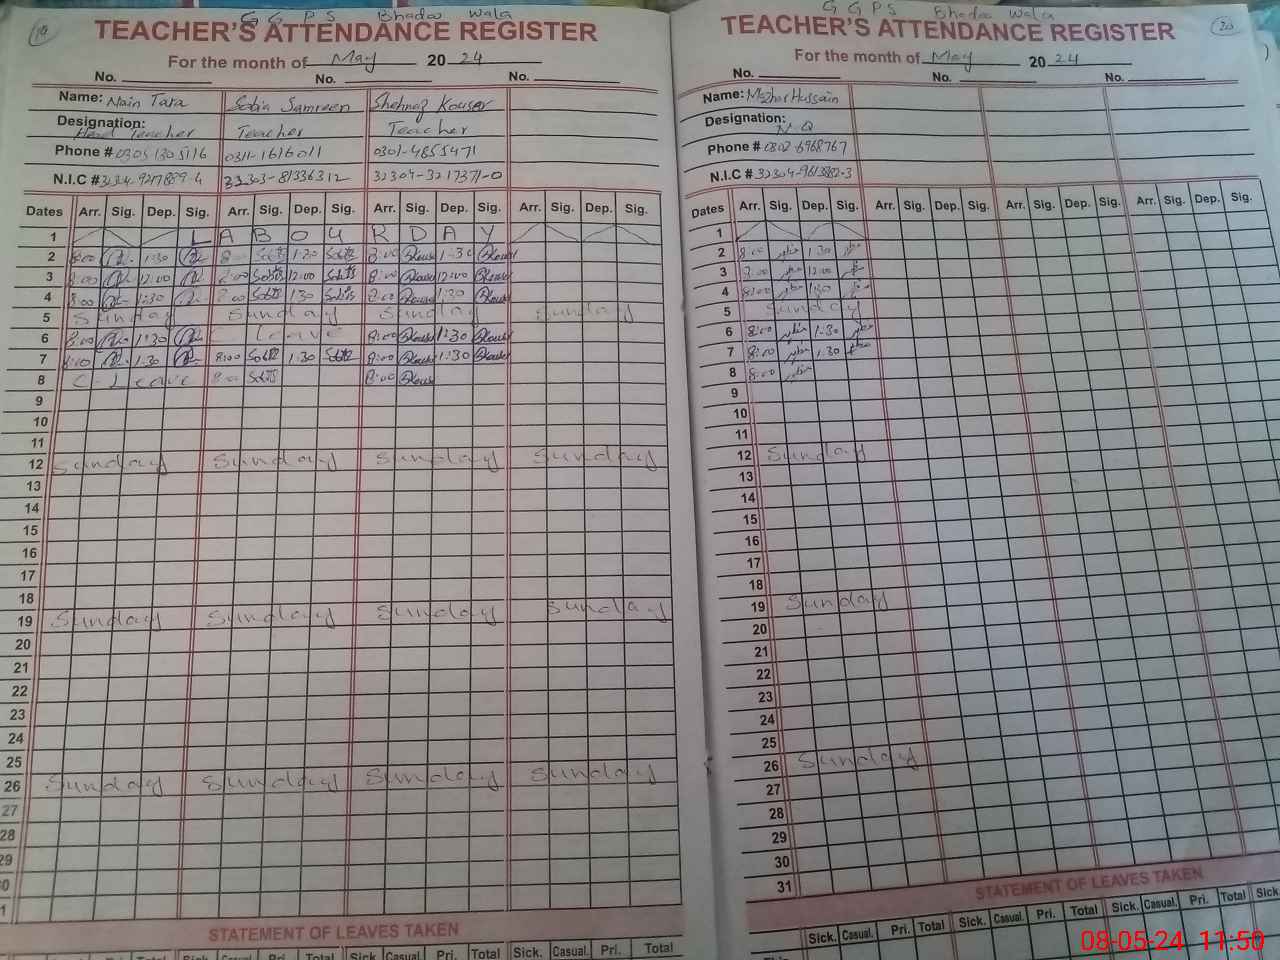 19
G G P S Bhadoo Wala
TEACHER'S ATTENDANCE REGISTER
For the month of May 20 24
No. No. No.
Name: Nain Tara Sobia Samreen Shehnaz Kouser
Designation: Head Teacher Teacher Teacher
Phone # 0305 1305116 0311-1616011 0301-4855471
N.I.C # 32303-81336312 32304-3217371-0
Dates Arr. Sig. Dep. Sig. Arr. Sig. Dep. Sig. Arr. Sig. Dep. Sig. Arr. Sig. Dep. Sig.
1 L A B O U R D A Y
2 8:00 1:30 8:00 1:30 8:00 1:30
3 8:00 12:00 8:00 12:00 8:00 12:00
4 8:00 1:30 8:00 1:30 8:00 1:30
5 Sunday Sunday Sunday Sunday
6 8:00 1:30 Leave 8:00 1:30
7 8:00 1:30 8:00 1:30 8:00 1:30
8 C-Leave 8:00 8:00
9
10
11
12 Sunday Sunday Sunday Sunday
13
14
15
16
17
18
19 Sunday Sunday Sunday Sunday
20
21
22
23
24
25
26 Sunday Sunday Sunday Sunday
27
28
29
30
1
STATEMENT OF LEAVES TAKEN
Sick. Casual. Pri. Total
20
G G P S Bhadoo Wala
TEACHER'S ATTENDANCE REGISTER
For the month of May 20 24
No. No. No.
Name: Mazhar Hussain
Designation: N.Q
Phone # 0302-6968767
N.I.C # 32304-9613882-3
Dates Arr. Sig. Dep. Sig. Arr. Sig. Dep. Sig. Arr. Sig. Dep. Sig. Arr. Sig. Dep. Sig.
1
2 8:00 1:30
3 8:00 12:00
4 8:00 1:30
5 Sunday
6 8:00 1:30
7 8:00 1:30
8 8:00
9
10
11
12 Sunday
13
14
15
16
17
18
19 Sunday
20
21
22
23
24
25
26 Sunday
27
28
29
30
31
STATEMENT OF LEAVES TAKEN
Sick. Casual. Pri. Total Sick. Casual. Pri. Total Sick. Casual. Pri. Total Sick.
08-05-24 11:50